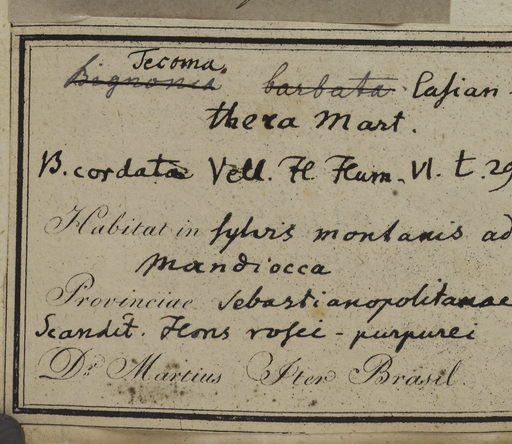 Tecoma
Bignonia barbata lasian-
thera Mart.
B. cordata Vell. Fl Flum. VI. t. 29
Habitat in sylvis montanis ad
Mandiocca
Provinciae Sebastianopolitanae
Scandit. Flores rosei-purpurei
Dr. Martius Iter Brasil